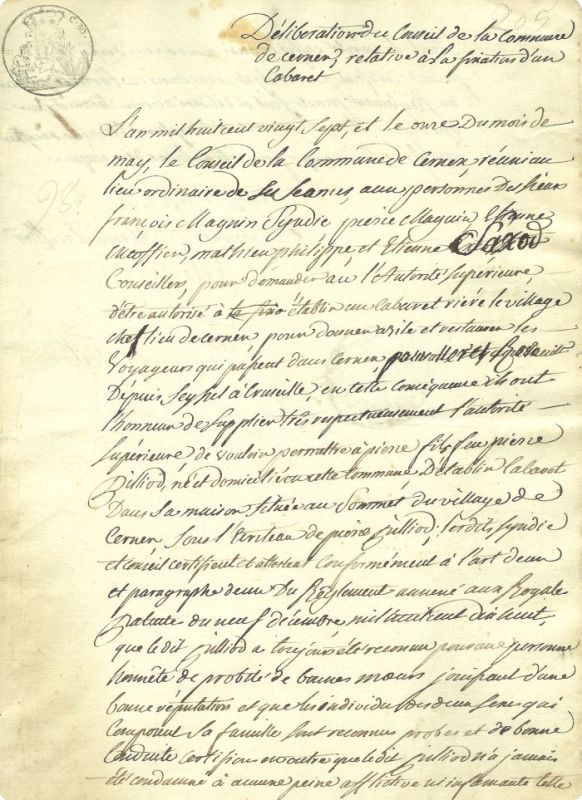 Déliberation du Conseil de la Commune
de cernex, relative à La fixation d'un
Cabaret
L'an mil huit cent vingt Sept, et le onze Du mois de
may, le Conseil de la Commune de Cernex, réuni au
lieu ordinaire de Ses Seances, aux personnes Des Sieurs
françois Magnin Syndic, pierre Magnin, Etienne
mathieu philippe et Etienne Saxod
Conseillers, pour demander au l'Autorité Supérieure,
d'être autorisé à établir un Cabaret rière le village
chef lieu de cernex, pour donner azile et restaurer les
Voyageurs qui passent dans Cernex, pour aller et
Depuis Seyssel à Cruseille, en cette Conséquence ils ont
l'honneur de Supplier très respectueusement l'autorité
Supérieure de vouloir permettre à pierre fils feu pierre
Julliod, né et domicilié en cette Commune, D'établir Cabaret
Dans Sa maison Située au Sommet du village de
Cernex Sous l'Ecriteau de pierre Julliod; Lesdits Syndic
et conseil certifient et attestent Conformément à l'art deux
et paragraphe deux Du Règlement annexé aux Royale
patente du neuf décembre mil huit cent
que le dit Julliod a toujours été reconnu pour une personne
honnête de probité de bonnes mœurs jouissant d'une
bonne réputation et que les individus des deux Sexes qui
Composent Sa famille Sont reconnus probes et de bonne
Conduite certifions en outre que le dit julliod n'a jamais
été condamné à aucune peine afflictive ni infamante telle